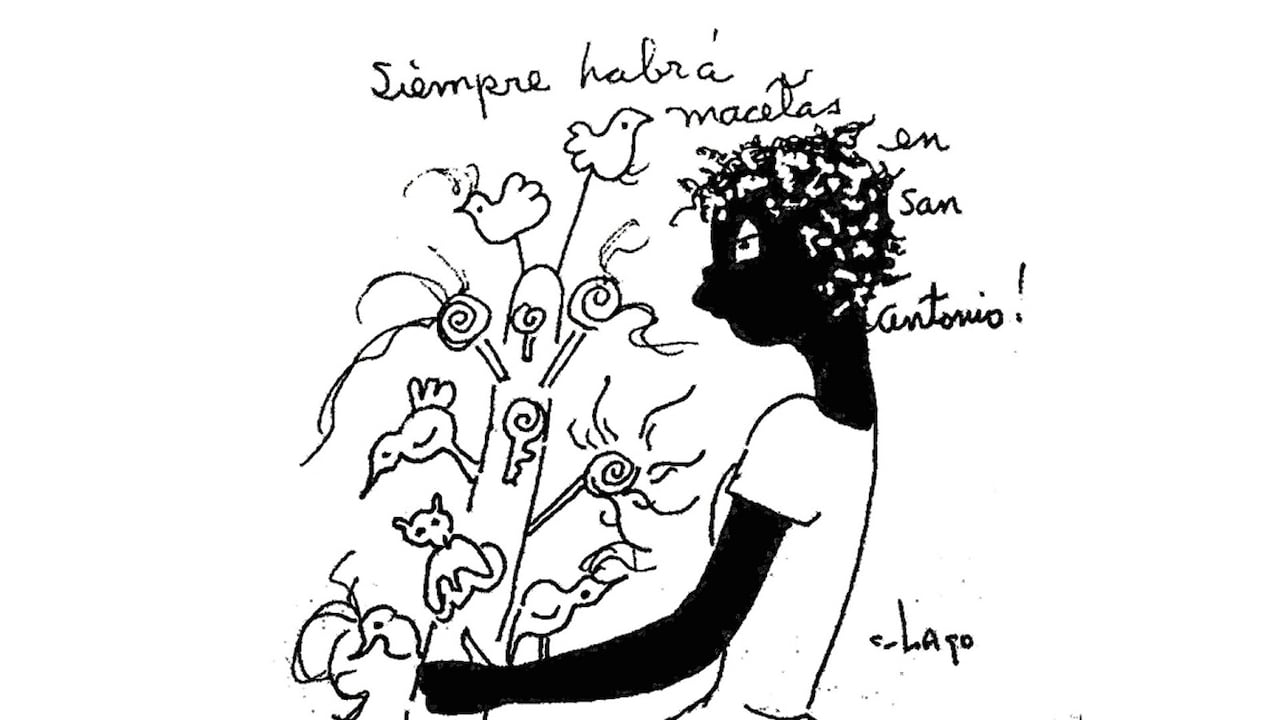 Siempre habrá
macetas
en
san
antonio!
c-Lago